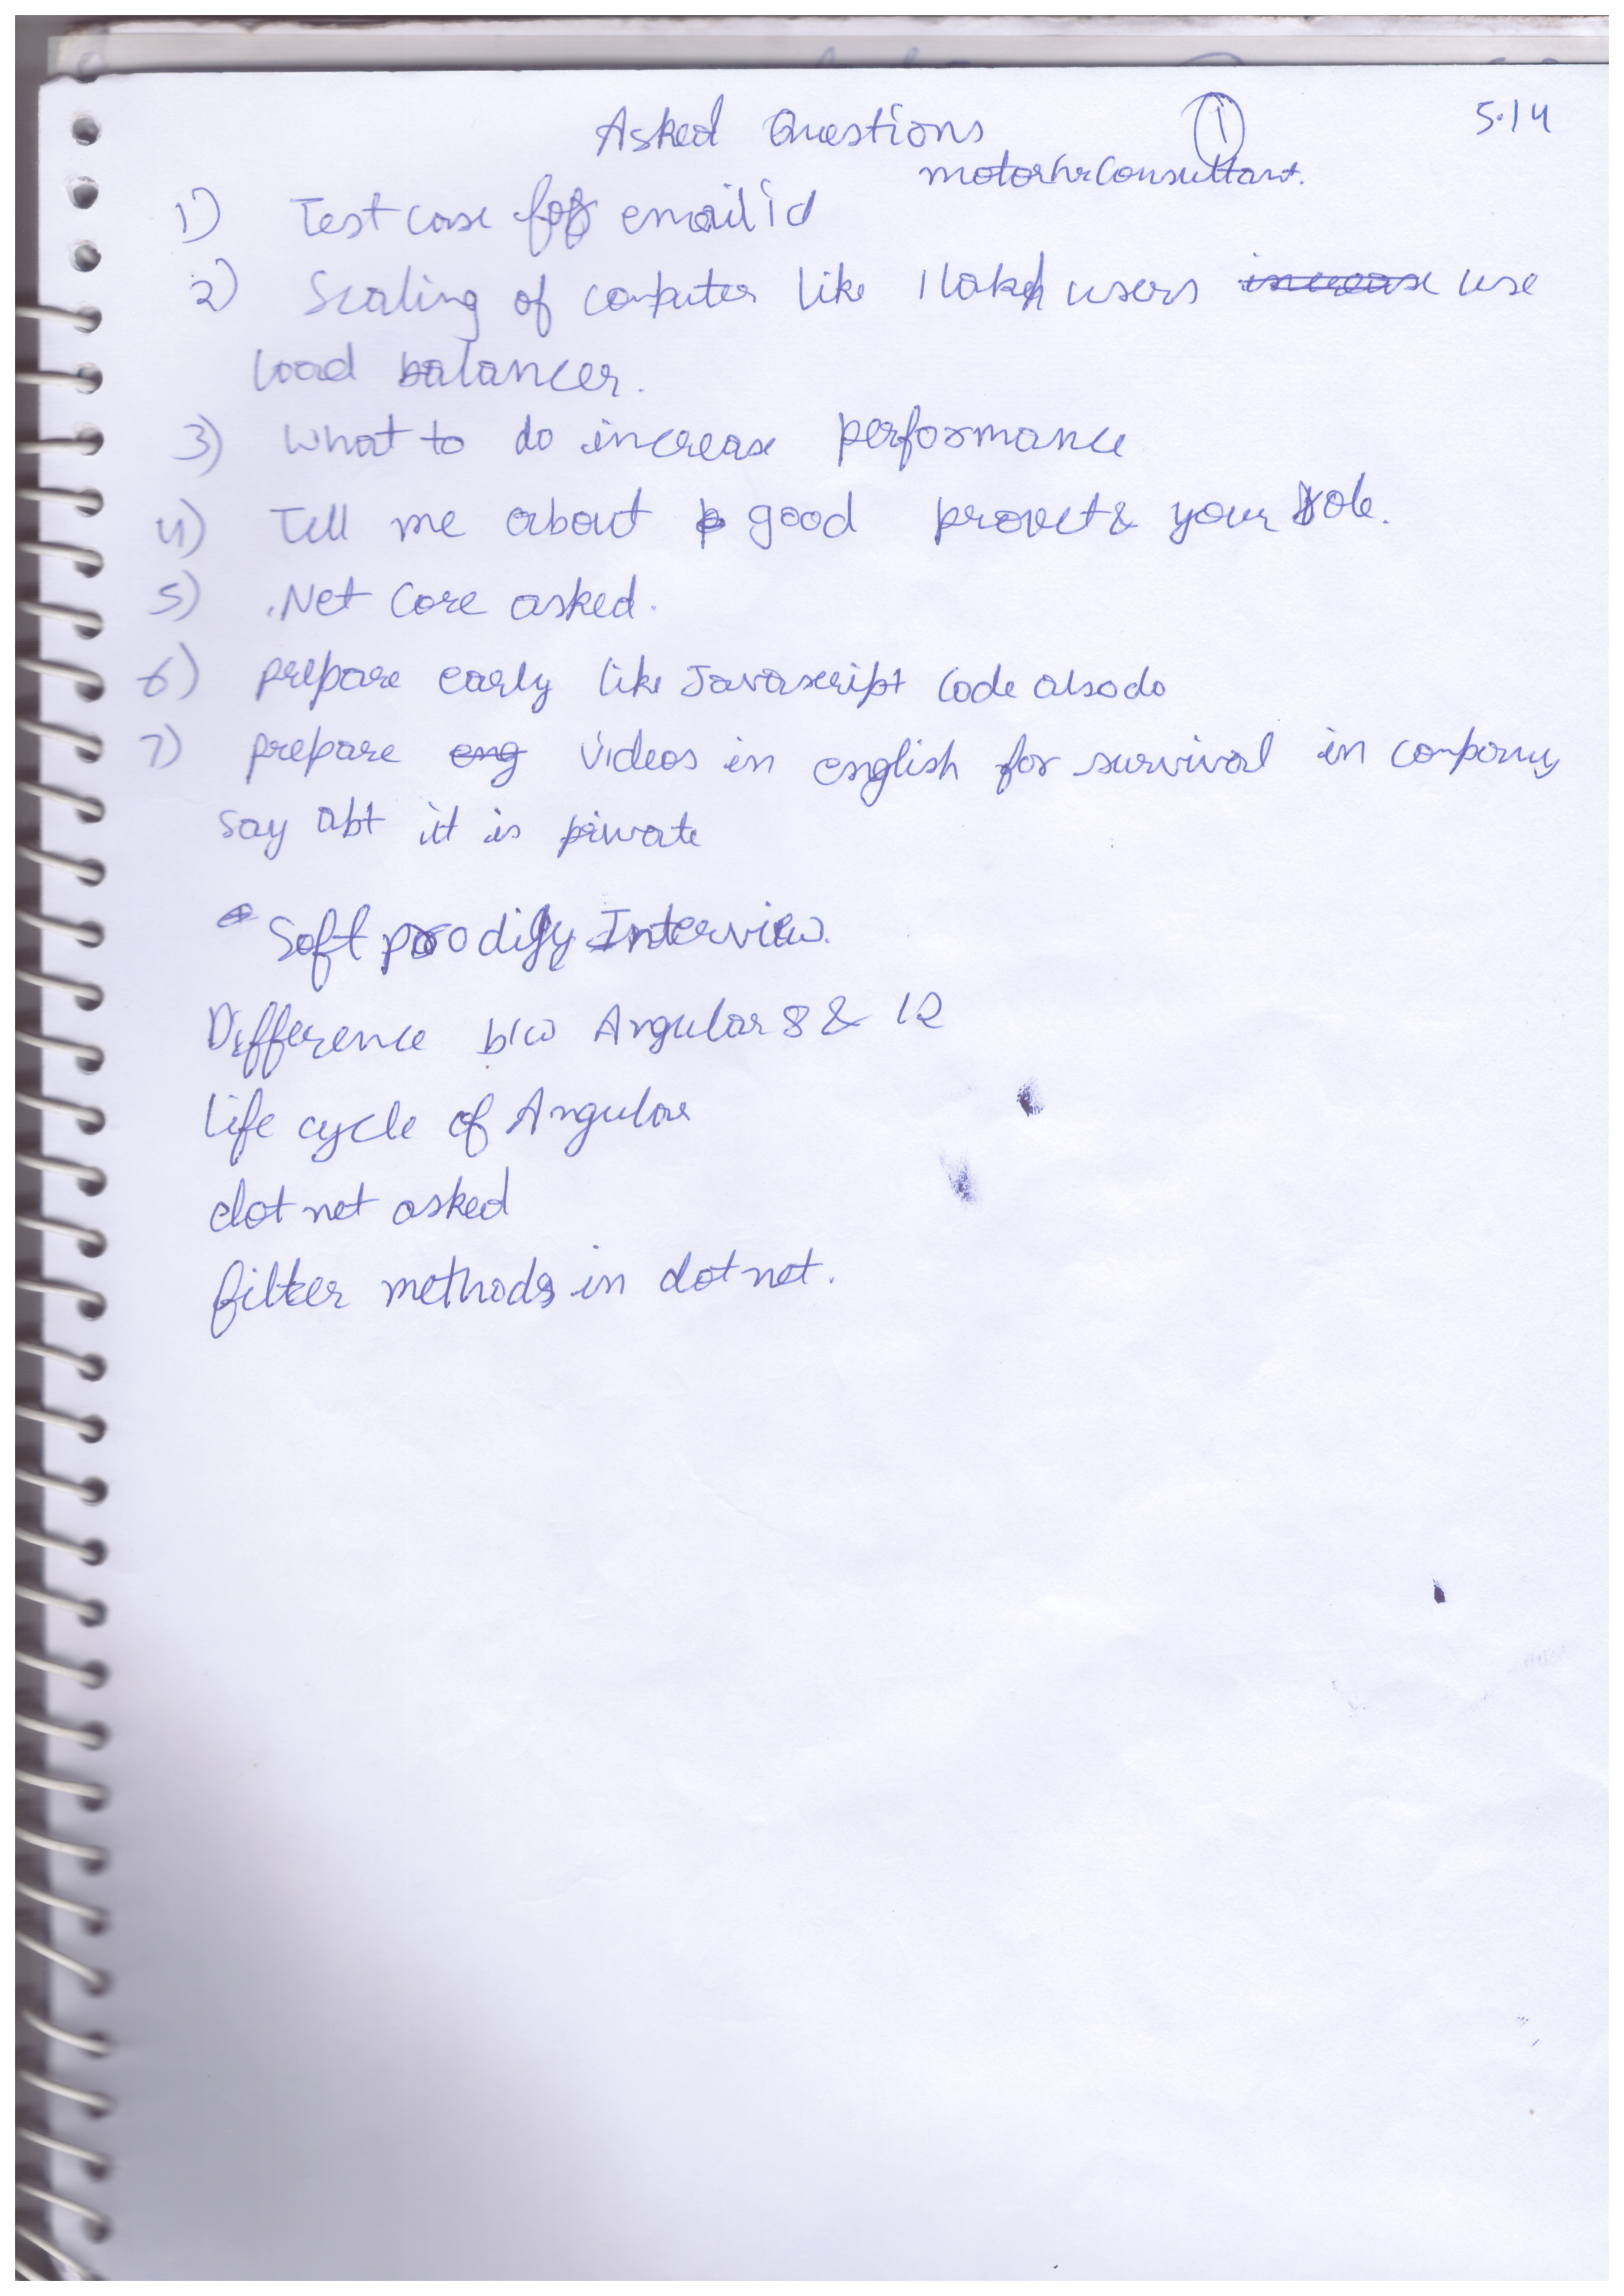 Asked Questions 1 5.14
motorhrConsultant.
1) Test case for email id
2) Scaling of computer like 1 lakh users increase use
load balancer.
3) What to do increase performance
4) Tell me about p good provet & your role.
5) .Net Core asked.
6) prepare early like Javascript code also do
7) prepare eng videos in english for survival in company
say abt it is pivate
Soft prodigy Interview.
Difference b/w Angular 8 & 12
Life cycle of Angular
dot net asked
filter methods in dot net.